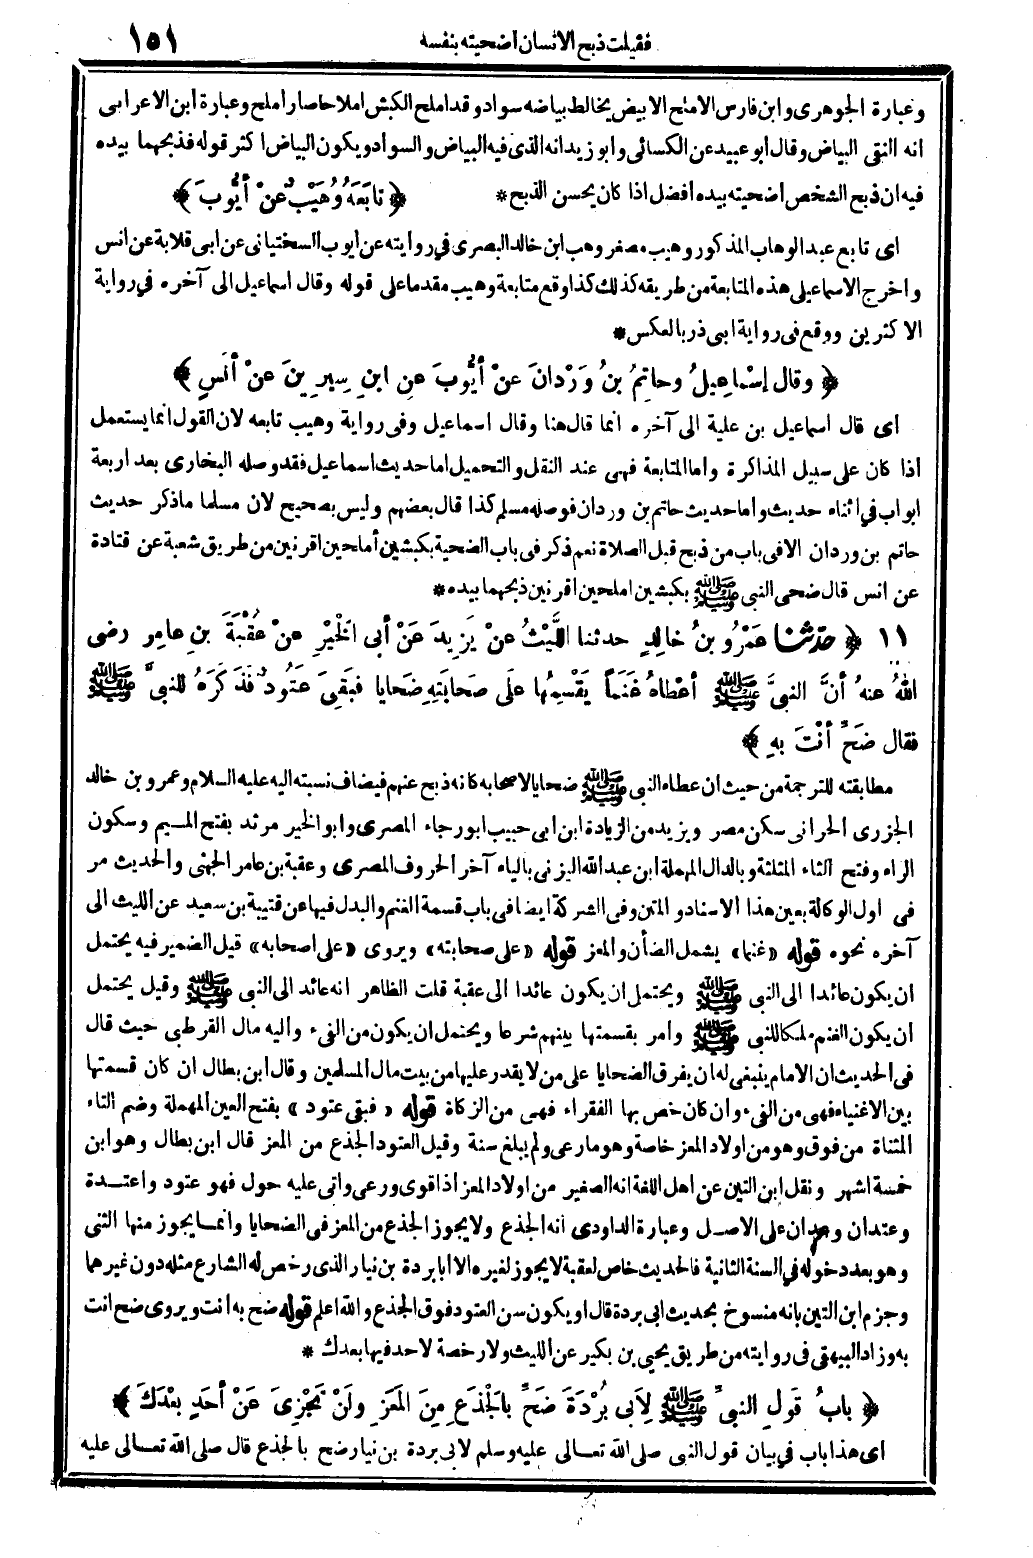 فضيلت ذبح الانسان اضحيته بنفسه ١٥١
وعبارة الجوهرى وابن فارس الاملح الابيض يخالط بياضه سواد وقد املح الكبش املاحا صار املح وعبارة ابن الاعرابى
انه النقى البياض وقال ابو عبيد عن الكسائى وابو زيد انه الذى فيه البياض والسواد ويكون البياض اكثر قوله فذبحهما بيده
فيه ان ذبح الشخص اضحيته بيده افضل اذا كان يحسن الذبح * ﴿ تابَعَهُ وُهَيْبٌ عنْ أيُّوبَ ﴾
اى تابع عبد الوهاب المذكور وهيب مصغر وهب ابن خالد البصرى في روايته عن ايوب السختيانى عن ابى قلابة عن انس
واخرج الاسماعيلى هذه المتابعة من طريقه كذلك كذا وقع متابعة وهيب مقدما على قوله وقال اسماعيل الى آخره في رواية
الاكثرين ووقع فى رواية ابى ذر بالعكس *
﴿ وقال إسْماعِيلُ وحاتِمُ بنُ وَرْدانَ عنْ أيُّوبَ عنِ ابنِ سِيرِينَ عنْ أنَسٍ ﴾
اى قال اسماعيل بن علية الى آخره انما قال هنا وقال اسماعيل وفى رواية وهيب تابعه لان القول انما يستعمل
اذا كان على سبيل المذاكرة واما المتابعة فهى عند النقل والتحميل اما حديث اسماعيل فقد وصله البخارى بعد اربعة
ابواب في اثناء حديث واما حديث حاتم بن وردان فوصله مسلم كذا قال بعضهم وليس بصحيح لان مسلما ماذكر حديث
حاتم بن وردان الا فى باب من ذبح قبل الصلاة نعم ذكر فى باب الضحية بكبشين أملحين اقرنين من طريق شعبة عن قتادة
عن انس قال ضحى النبى ﷺ بكبشين املحين اقرنين ذبحهما بيده *
١١ ﴿ حدّثنا عَمْرُو بنُ خالِدٍ حدثنا اللَّيْثُ عنْ يَزِيدَ عَنْ أبى الخَيْرِ عنْ عُقْبَةَ بنِ عامِرٍ رضى
اللهُ عنهُ أنَّ النبىَّ ﷺ أعْطاهُ غَنَماً يَقْسِمُها على صَحابَتِهِ ضَحايا فبَقِىَ عَتُودٌ فَذَكَرَهُ للنبىِّ ﷺ
فقال ضَحِّ أنْتَ بِهِ ﴾
مطابقته للترجمة من حيث ان عطاء النبى ﷺ ضحايا لاصحابه كانه ذبح عنهم فيضاف نسبته اليه عليه السلام وعمرو بن خالد
الجزرى الحرانى سكن مصر ويزيد من الزيادة ابن ابى حبيب ابو رجاء المصرى وابو الخير مرثد بفتح الميم وسكون
الراء وفتح الثاء المثلثة وبالدال المهملة ابن عبد الله اليزنى بالياء آخر الحروف المصرى وعقبة بن عامر الجهنى والحديث مر
فى اول الوكالة بعين هذا الاسناد والمتن وفى الشركة ايضا فى باب قسمة الغنم والبدل فيها عن قتيبة بن سعيد عن الليث الى
آخره نحوه قوله «غنما» يشمل الضأن والمعز قوله «على صحابته» ويروى «على اصحابه» قيل الضمير فيه يحتمل
ان يكون عائدا الى النبى ﷺ ويحتمل ان يكون عائدا الى عقبة قلت الظاهر انه عائد الى النبى ﷺ وقيل يحتمل
ان يكون الغنم ملكا للنبى ﷺ وأمر بقسمتها بينهم شرعا ويحتمل ان يكون من الفىء واليه مال القرطبى حيث قال
فى الحديث ان الامام ينبغى له ان يفرق الضحايا على من لا يقدر عليها من بيت مال المسلمين وقال ابن بطال ان كان قسمتها
بين الاغنياء فهى من الفىء وان كان خص بها الفقراء فهى من الزكاة قوله «فبقى عتود» بفتح العين المهملة وضم التاء
المثناة من فوق وهو من اولاد المعز خاصة وهو مارعى ولم يبلغ سنة وقيل العتود الجذع من المعز قال ابن بطال وهو ابن
خمسة اشهر ونقل ابن التين عن اهل اللغة انه الصغير من اولاد المعز اذا قوى ورعى واتى عليه حول فهو عتود واعتدة
وعتدان وعدان على الاصل وعبارة الداودى انه الجذع ولا يجوز الجذع من المعز فى الضحايا وانما يجوز منها الثنى
وهو بعد دخوله في السنة الثانية فالحديث خاص لعقبة لا يجوز لغيره الا ابا بردة بن نيار الذى رخص له الشارع مثله دون غيرهما
وجزم ابن التين بانه منسوخ بحديث ابى بردة قال او يكون سن العتود فوق الجذع والله اعلم قوله ضح به انت ويروى ضح انت
به وزاد البيهقى فى روايته من طريق يحيى بن بكير عن الليث ولا رخصة لاحد فيها بعدك *
﴿ بابُ قَولِ النبىِّ ﷺ لِأبى بُرْدَةَ ضَحِّ بالجَذَعِ مِنَ المَعَزِ ولَنْ تَجْزِىَ عَنْ أحَدٍ بعْدَكَ ﴾
اى هذا باب في بيان قول النبى صلى الله تعالى عليه وسلم لابى بردة بن نيار ضح بالجذع قال صلى الله تعالى عليه